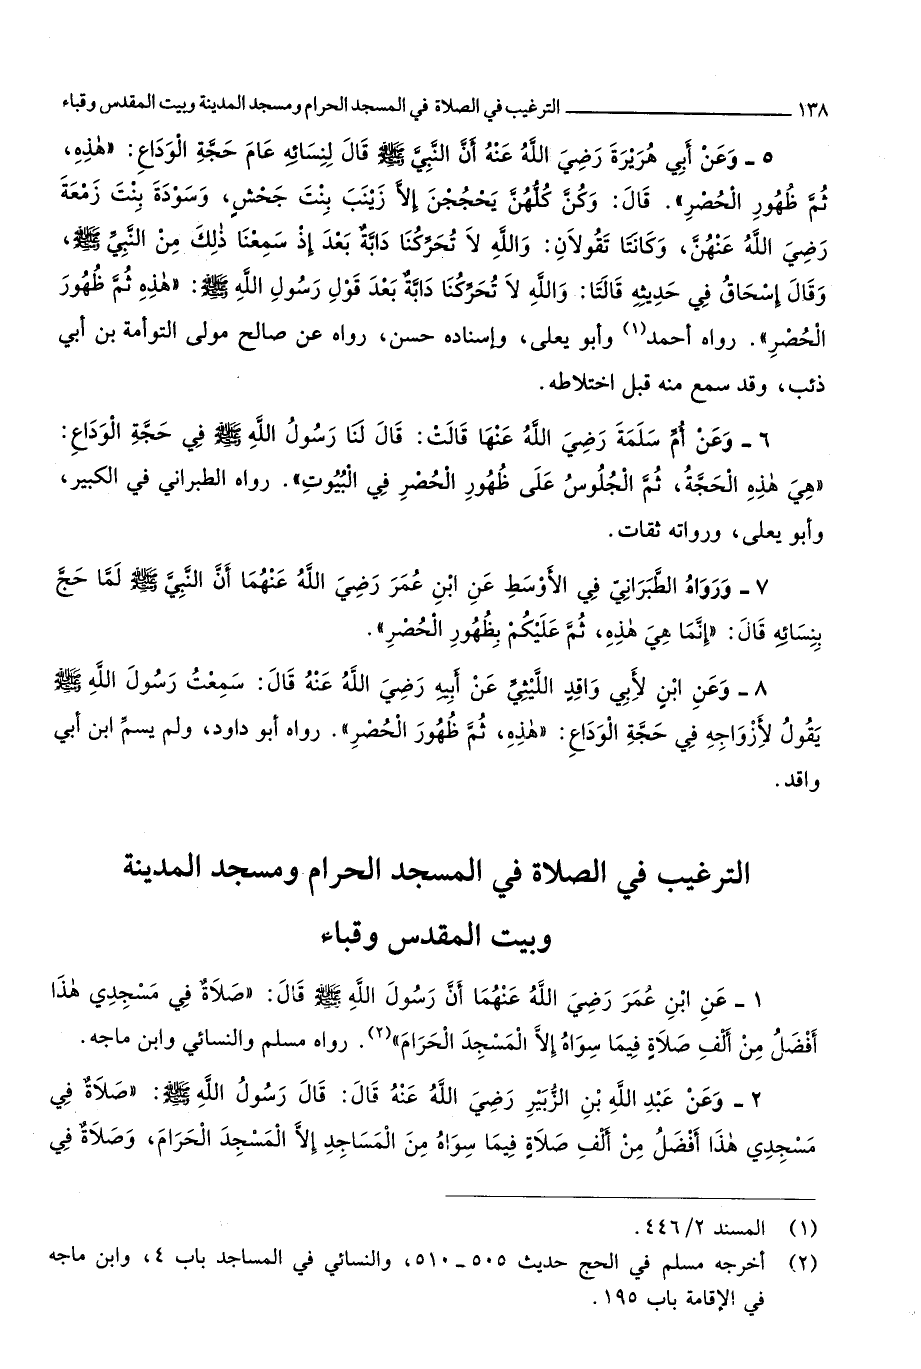 ١٣٨ ــــــــــــــ الترغيب في الصلاة في المسجد الحرام ومسجد المدينة وبيت المقدس وقباء
٥ ـ وَعَنْ أَبِي هُرَيْرَةَ رَضِيَ اللَّهُ عَنْهُ أَنَّ النَّبِيَّ ﷺ قَالَ لِنِسَائِهِ عَامَ حَجَّةِ الْوَدَاعِ: «هٰذِهِ،
ثُمَّ ظُهُورِ الْحُصْرِ». قَالَ: وَكُنَّ كُلُّهُنَّ يَحْجُجْنَ إِلاَّ زَيْنَبَ بِنْتَ جَحْشٍ، وَسَوْدَةَ بِنْتَ زَمْعَةَ
رَضِيَ اللَّهُ عَنْهُنَّ، وَكَانَتَا تَقُولاَنِ: وَاللَّهِ لاَ تُحَرِّكُنَا دَابَّةٌ بَعْدَ إِذْ سَمِعْنَا ذٰلِكَ مِنْ النَّبِيِّ ﷺ،
وَقَالَ إِسْحَاقُ فِي حَدِيثِهِ قَالَتَا: وَاللَّهِ لاَ تُحَرِّكُنَا دَابَّةٌ بَعْدَ قَوْلِ رَسُولِ اللَّهِ ﷺ: «هٰذِهِ ثُمَّ ظُهُورَ
الْحُصْرِ». رواه أحمد(١) وأبو يعلى، وإسناده حسن، رواه عن صالح مولى التوأمة بن أبي
ذئب، وقد سمع منه قبل اختلاطه.
٦ ـ وَعَنْ أُمِّ سَلَمَةَ رَضِيَ اللَّهُ عَنْهَا قَالَتْ: قَالَ لَنَا رَسُولُ اللَّهِ ﷺ فِي حَجَّةِ الْوَدَاعِ:
«هِيَ هٰذِهِ الْحَجَّةُ، ثُمَّ الْجُلُوسُ عَلَى ظُهُورِ الْحُصْرِ فِي الْبُيُوتِ». رواه الطبراني في الكبير،
وأبو يعلى، ورواته ثقات.
٧ ـ وَرَوَاهُ الطَّبَرَانِيّ فِي الأَوْسَطِ عَنِ ابْنِ عُمَرَ رَضِيَ اللَّهُ عَنْهُمَا أَنَّ النَّبِيَّ ﷺ لَمَّا حَجَّ
بِنِسَائِهِ قَالَ: «إِنَّمَا هِيَ هٰذِهِ، ثُمَّ عَلَيْكُمْ بِظُهُورِ الْحُصْرِ».
٨ ـ وَعَنِ ابْنٍ لأَبِي وَاقِدٍ اللَّيْثِيِّ عَنْ أَبِيهِ رَضِيَ اللَّهُ عَنْهُ قَالَ: سَمِعْتُ رَسُولَ اللَّهِ ﷺ
يَقُولُ لأَزْوَاجِهِ فِي حَجَّةِ الْوَدَاعِ: «هٰذِهِ، ثُمَّ ظُهُورَ الْحُصْرِ». رواه أبو داود، ولم يسمِّ ابن أبي
واقد.
الترغيب في الصلاة في المسجد الحرام ومسجد المدينة
وبيت المقدس وقباء
١ ـ عَنِ ابْنِ عُمَرَ رَضِيَ اللَّهُ عَنْهُمَا أَنَّ رَسُولَ اللَّهِ ﷺ قَالَ: «صَلاَةٌ فِي مَسْجِدِي هٰذَا
أَفْضَلُ مِنْ أَلْفِ صَلاَةٍ فِيمَا سِوَاهُ إِلاَّ الْمَسْجِدَ الْحَرَامَ»(٢). رواه مسلم والنسائي وابن ماجه.
٢ ـ وَعَنْ عَبْدِ اللَّهِ بْنِ الزُّبَيْرِ رَضِيَ اللَّهُ عَنْهُ قَالَ: قَالَ رَسُولُ اللَّهِ ﷺ: «صَلاَةٌ فِي
مَسْجِدِي هٰذَا أَفْضَلُ مِنْ أَلْفِ صَلاَةٍ فِيمَا سِوَاهُ مِنَ الْمَسَاجِدِ إِلاَّ الْمَسْجِدَ الْحَرَامَ، وَصَلاَةٌ فِي
(١) المسند ٤٤٦/٢.
(٢) أخرجه مسلم في الحج حديث ٥٠٥ ـ ٥١٠، والنسائي في المساجد باب ٤، وابن ماجه
في الإقامة باب ١٩٥.